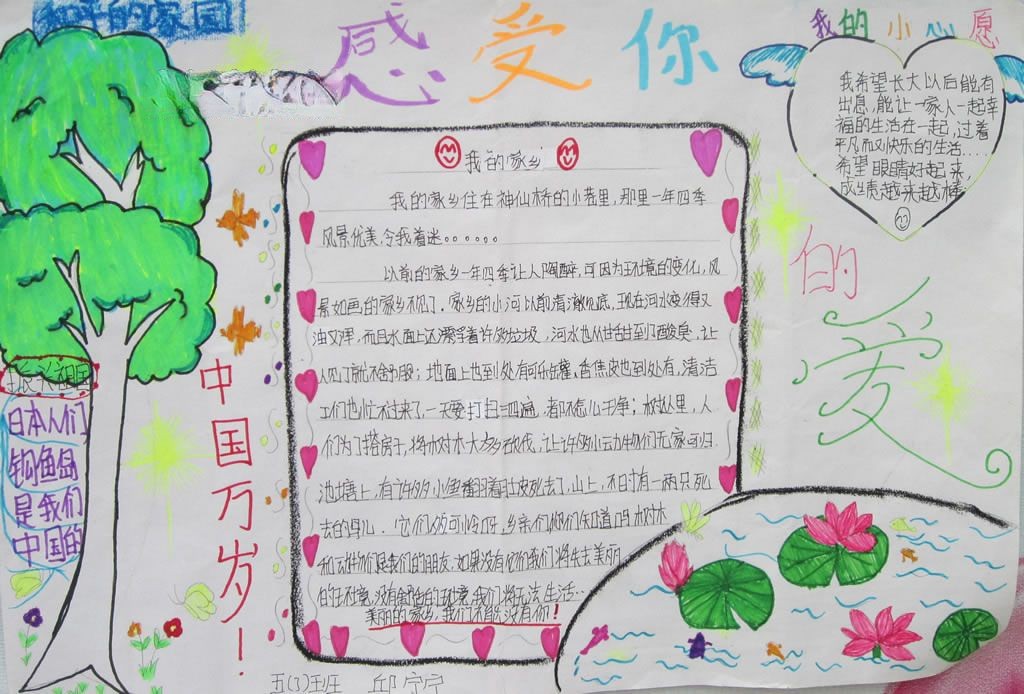 和平的家园
感受你
的
爱
我的小心愿
我希望长大以后能有
出息,能让一家人一起幸
福的生活在一起,过着
平凡而又快乐的生活....
希望眼睛好起来,
成绩越来越棒
我的家乡
我的家乡住在神仙桥的小巷里,那里一年四季
风景优美,令我着迷。。。。。。
以前的家乡一年四季让人陶醉,可因为环境的变化,风
景如画的家乡不见了.家乡的小河以前清澈见底,现在河水变得又
油又浑,而且水面上还漂浮着许多垃圾,河水也从甘甜到了酸臭,让
人见了就不舒服;地面上也到处有可乐罐,香焦皮也到处有,清洁
工们也忙不过来了,一天要打扫三四遍,都不怎么干净;树丛里,人
们为了搭房子,将树木大多砍伐,让许多小动物们无家可归.
池塘上,有许多小鱼翻着肚皮死去了,山上,不时有一两只死
去的鸟儿.它们多可怜呀,乡亲们你们知道吗树木
和动物们是我们的朋友.如果没有你们我们将失去美丽
的环境,没有的环境,我们将无法生活..
美丽的家乡,我们不能没有你!
张张祖国
日本人们
钓鱼岛
是我们
中国的
中国万岁!
五(3)班 邱宁宁